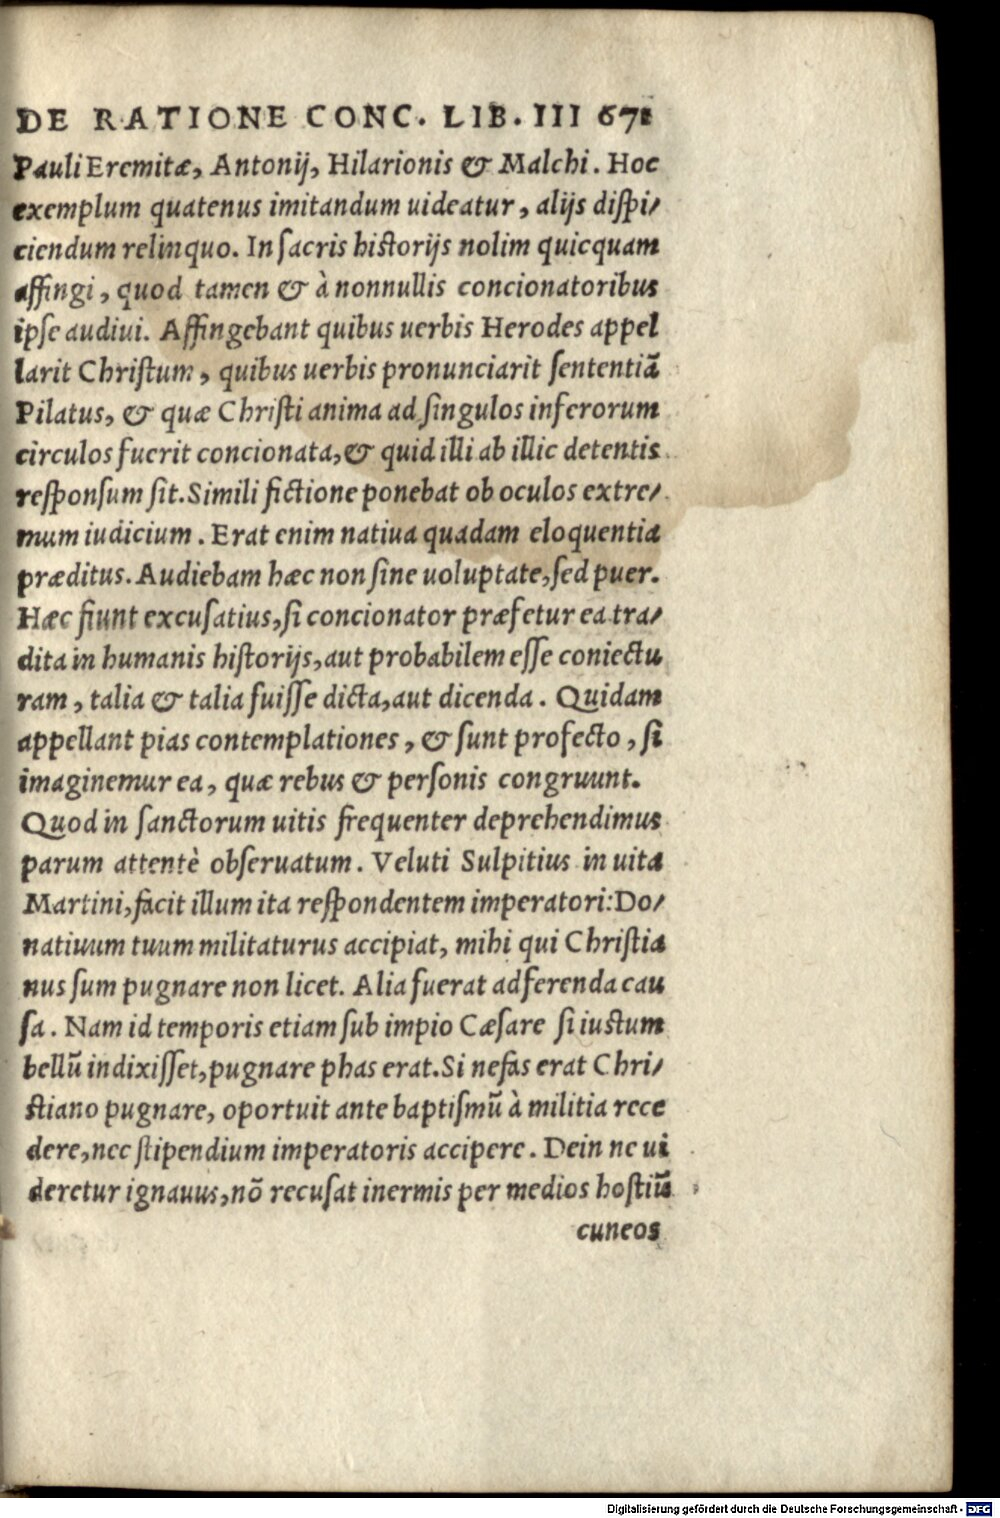 DE RATIONE CONC. LIB. III 671
Pauli Eremitæ, Antonij, Hilarionis & Malchi. Hoc
exemplum quatenus imitandum uideatur, alijs dispi/
ciendum relinquo. In sacris historijs nolim quicquam
affingi, quod tamen & à nonnullis concionatoribus
ipse audiui. Affingebant quibus uerbis Herodes appel
larit Christum, quibus uerbis pronunciarit sententiã
Pilatus, & quæ Christi anima ad singulos inferorum
circulos fuerit concionata, & quid illi ab illic detentis
responsum sit. Simili fictione ponebat ob oculos extre/
mum iudicium. Erat enim natiua quadam eloquentia
præditus. Audiebam hæc non sine uoluptate, sed puer.
Hæc fiunt excusatius, si concionator præfetur ea tra/
dita in humanis historijs, aut probabilem esse coniectu
ram, talia & talia fuisse dicta, aut dicenda. Quidam
appellant pias contemplationes, & sunt profecto, si
imaginemur ea, quæ rebus & personis congruunt.
Quod in sanctorum uitis frequenter deprehendimus
parum attentè obseruatum. Veluti Sulpitius in uita
Martini, facit illum ita respondentem imperatori: Do/
natiuum tuum militaturus accipiat, mihi qui Christia
nus sum pugnare non licet. Alia fuerat adferenda cau
sa. Nam id temporis etiam sub impio Cæsare si iustum
bellũ indixisset, pugnare phas erat. Si nefas erat Chri/
stiano pugnare, oportuit ante baptismũ à militia rece
dere, nec stipendium imperatoris accipere. Dein ne ui
deretur ignauus, nõ recusat inermis per medios hostiũ
cuneos
Digitalisierung gefördert durch die Deutsche Forschungsgemeinschaft - DFG